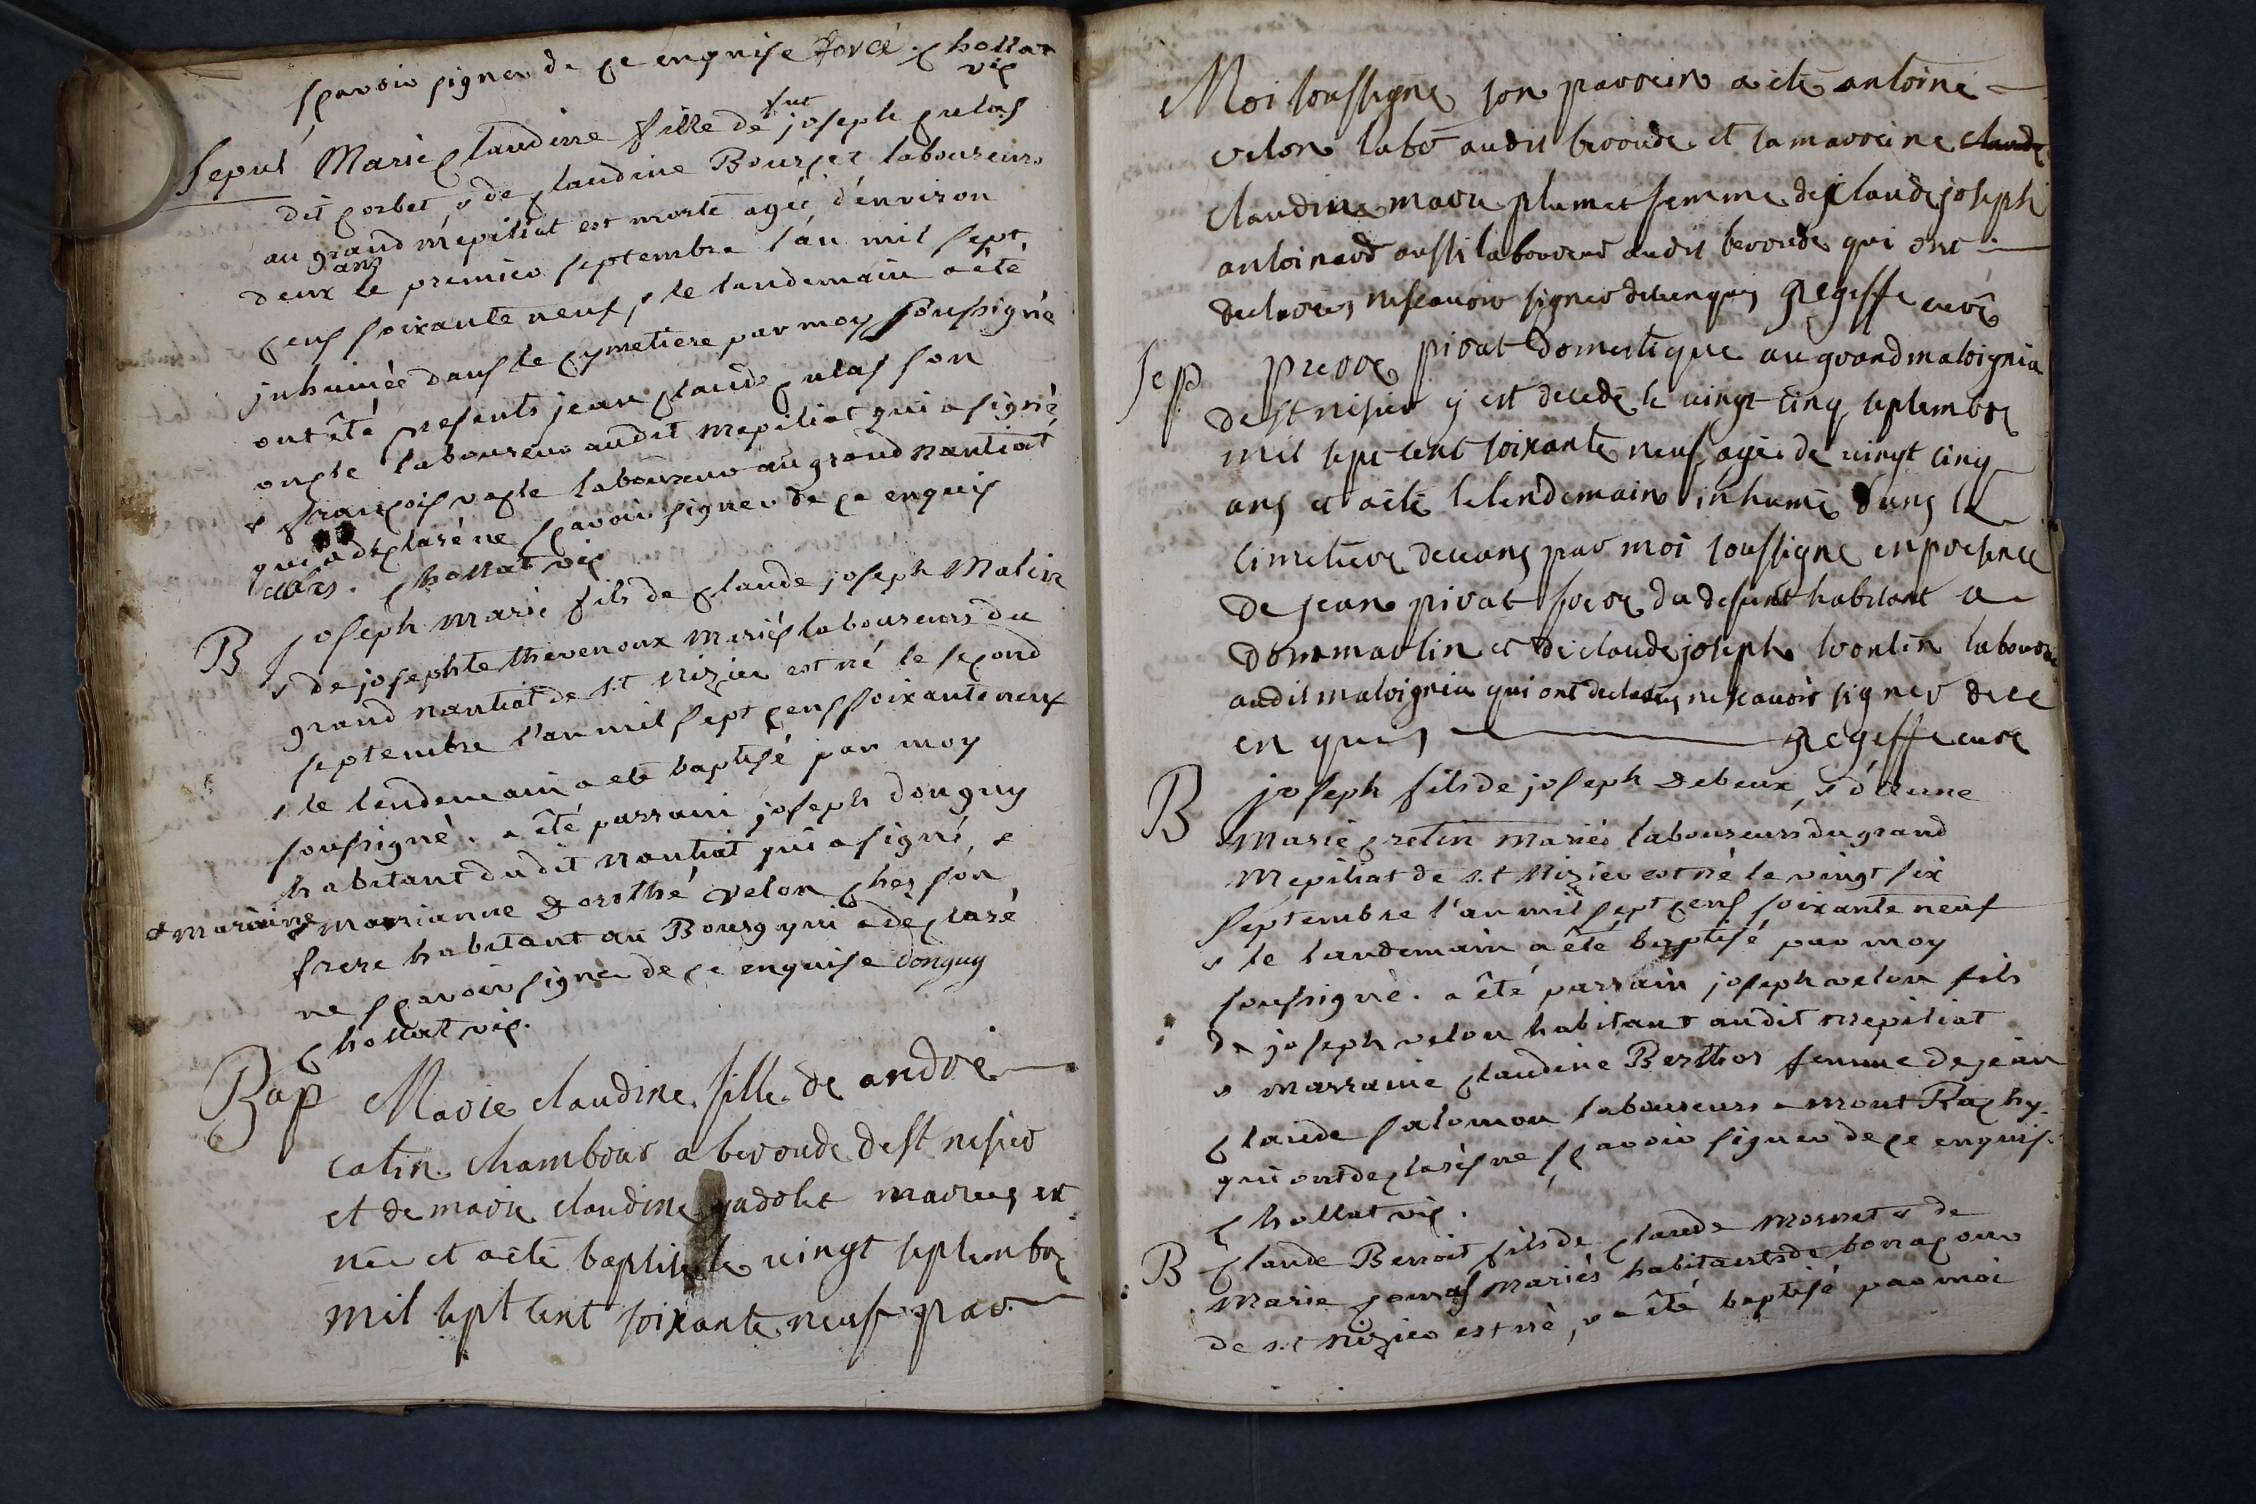 sçavoir signer de ce enquise forcé. Chollat
vic
Sepul Marie Claudine fille de fut joseph Culas
dit corbet, & de Claudine Bourget laboureurs
au grand mepiliat est morte agée d'environ
deux ans le premier septembre l'an mil sept
cens soixante neuf, & le landemain a été
inhumée dans le cymetiere par moy soussigné
ont êté presents jean Claude Culas son
oncle laboureur audit mepiliat qui a signé
& françois vesle laboureur au grand nantiat
qui a declaré ne sçavoir signer de ce enquis
culas. Chollat vic
B joseph marie fils de Claude joseph Malin
& de josephte thevenoux mariés laboureurs du
grand nantiat de s.t nizier est né le second
septembre l'an mil sept cens soixante neuf
& le lendemain a eté baptisé par moy
soussigné. a êté parrain joseph donguy
habitant dudit nantiat qui a signé, &
& maraine marianne Dorothé velon chez son
frere habitant au Bourg qui a declaré
ne sçavoir signer de ce enquise donguy
Chollat vic.
Bap Marie claudine fille de andré
catin chambour a bevoude de st nisier
et de marie claudine gadolet mariés est
née et a êté baptisé le vingt septembre
mil sept cent soixante neuf par
Moi soussigné son parrein a été antoine
velon labō audit bevoude et sa marreine claude
claudine marie plumet femme de claude joseph
antoinard aussi laboureur audit bevoude qui ont
declarés ne scavoir signer de ce enquis Gregeffe curé
Sep pierre pivat domestique au grand malvignia
de st nisier y est decedé le vingt cinq septembre
mil sept cent soixante neuf agé de vingt cinq
ans et a été le lendemain inhumé dans le
cimetiere de ceans par moi soussigné en presence
de jean pivat frere du defunt habitant a
dommartin et de claude joseph woulin laboure
audit malvignia qui ont declarés ne scavoir signer de ce
enquis Gregeffe curé
B joseph fils de joseph Debeux, & d'etienne
marie cretin mariés laboureurs du grand
mepiliat de s.t Nizier est né le vingt six
septembre l'an mil sept cens soixante neuf
& le landemain a êté baptisé par moy
soussigné. a êté parrain joseph velon fils
de joseph velon habitant audit mepiliat
& marraine Claudine Berthos femme de jean
Claude salomon laboureurs a mont Rachy
qui ont declarés ne sçavoir signer de ce enquis.
Chollat vic.
B Claude Benoit fils de Claude mornet & de
Marie gouras mariés habitants de bonacour
de s.t nizier est né, & a êté baptisé par moi